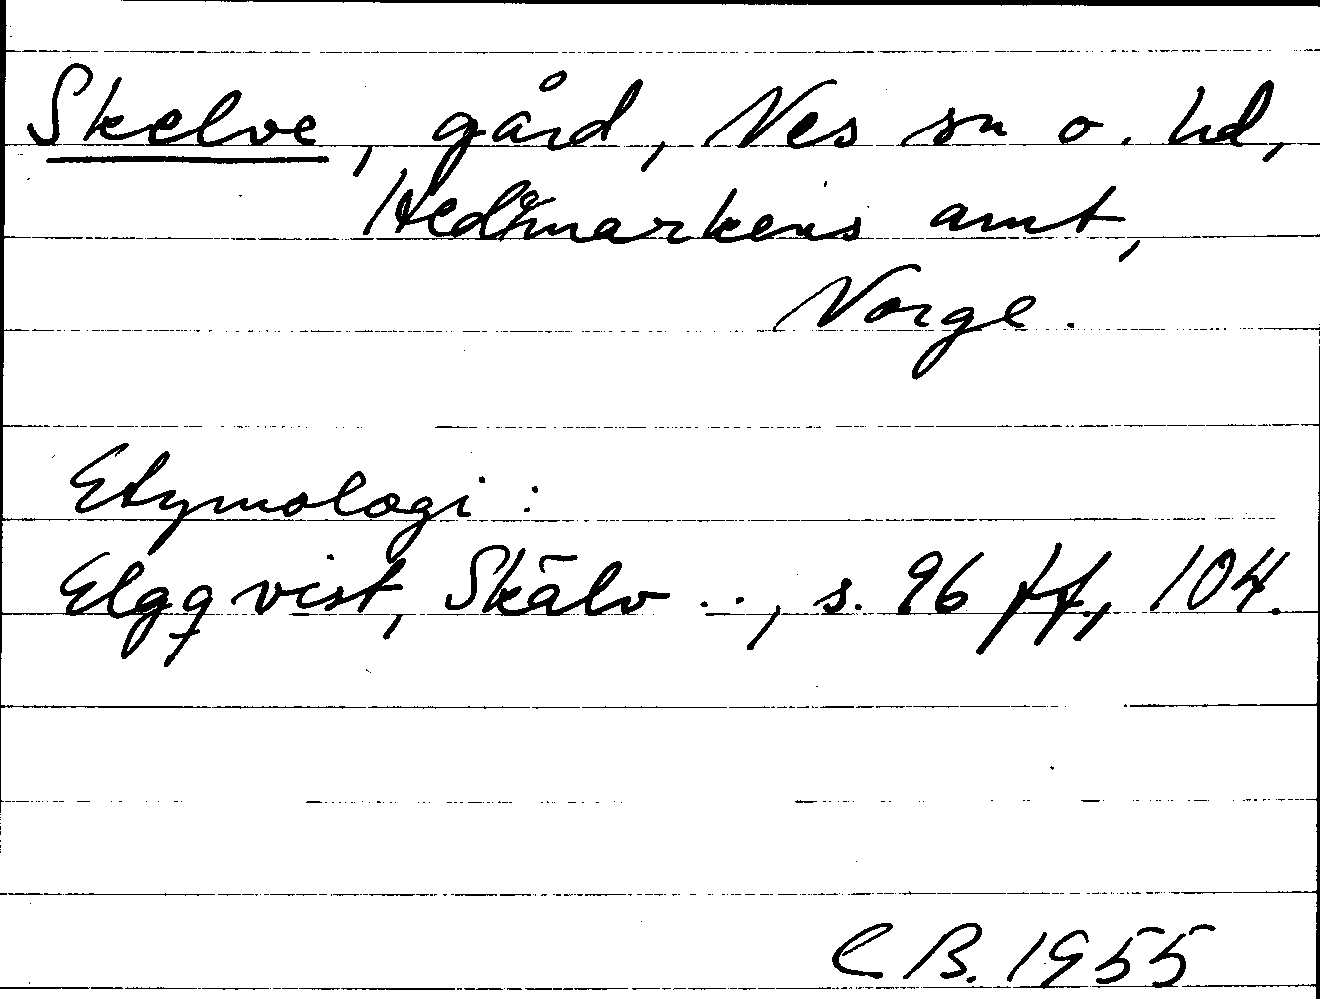 Skelve, gård, Ves sn o. hd,
Hedemarkens amt,
Norge.
Etymologi:
Elgqvist, Skälv .., s. 96 ff., 104.
C B. 1955